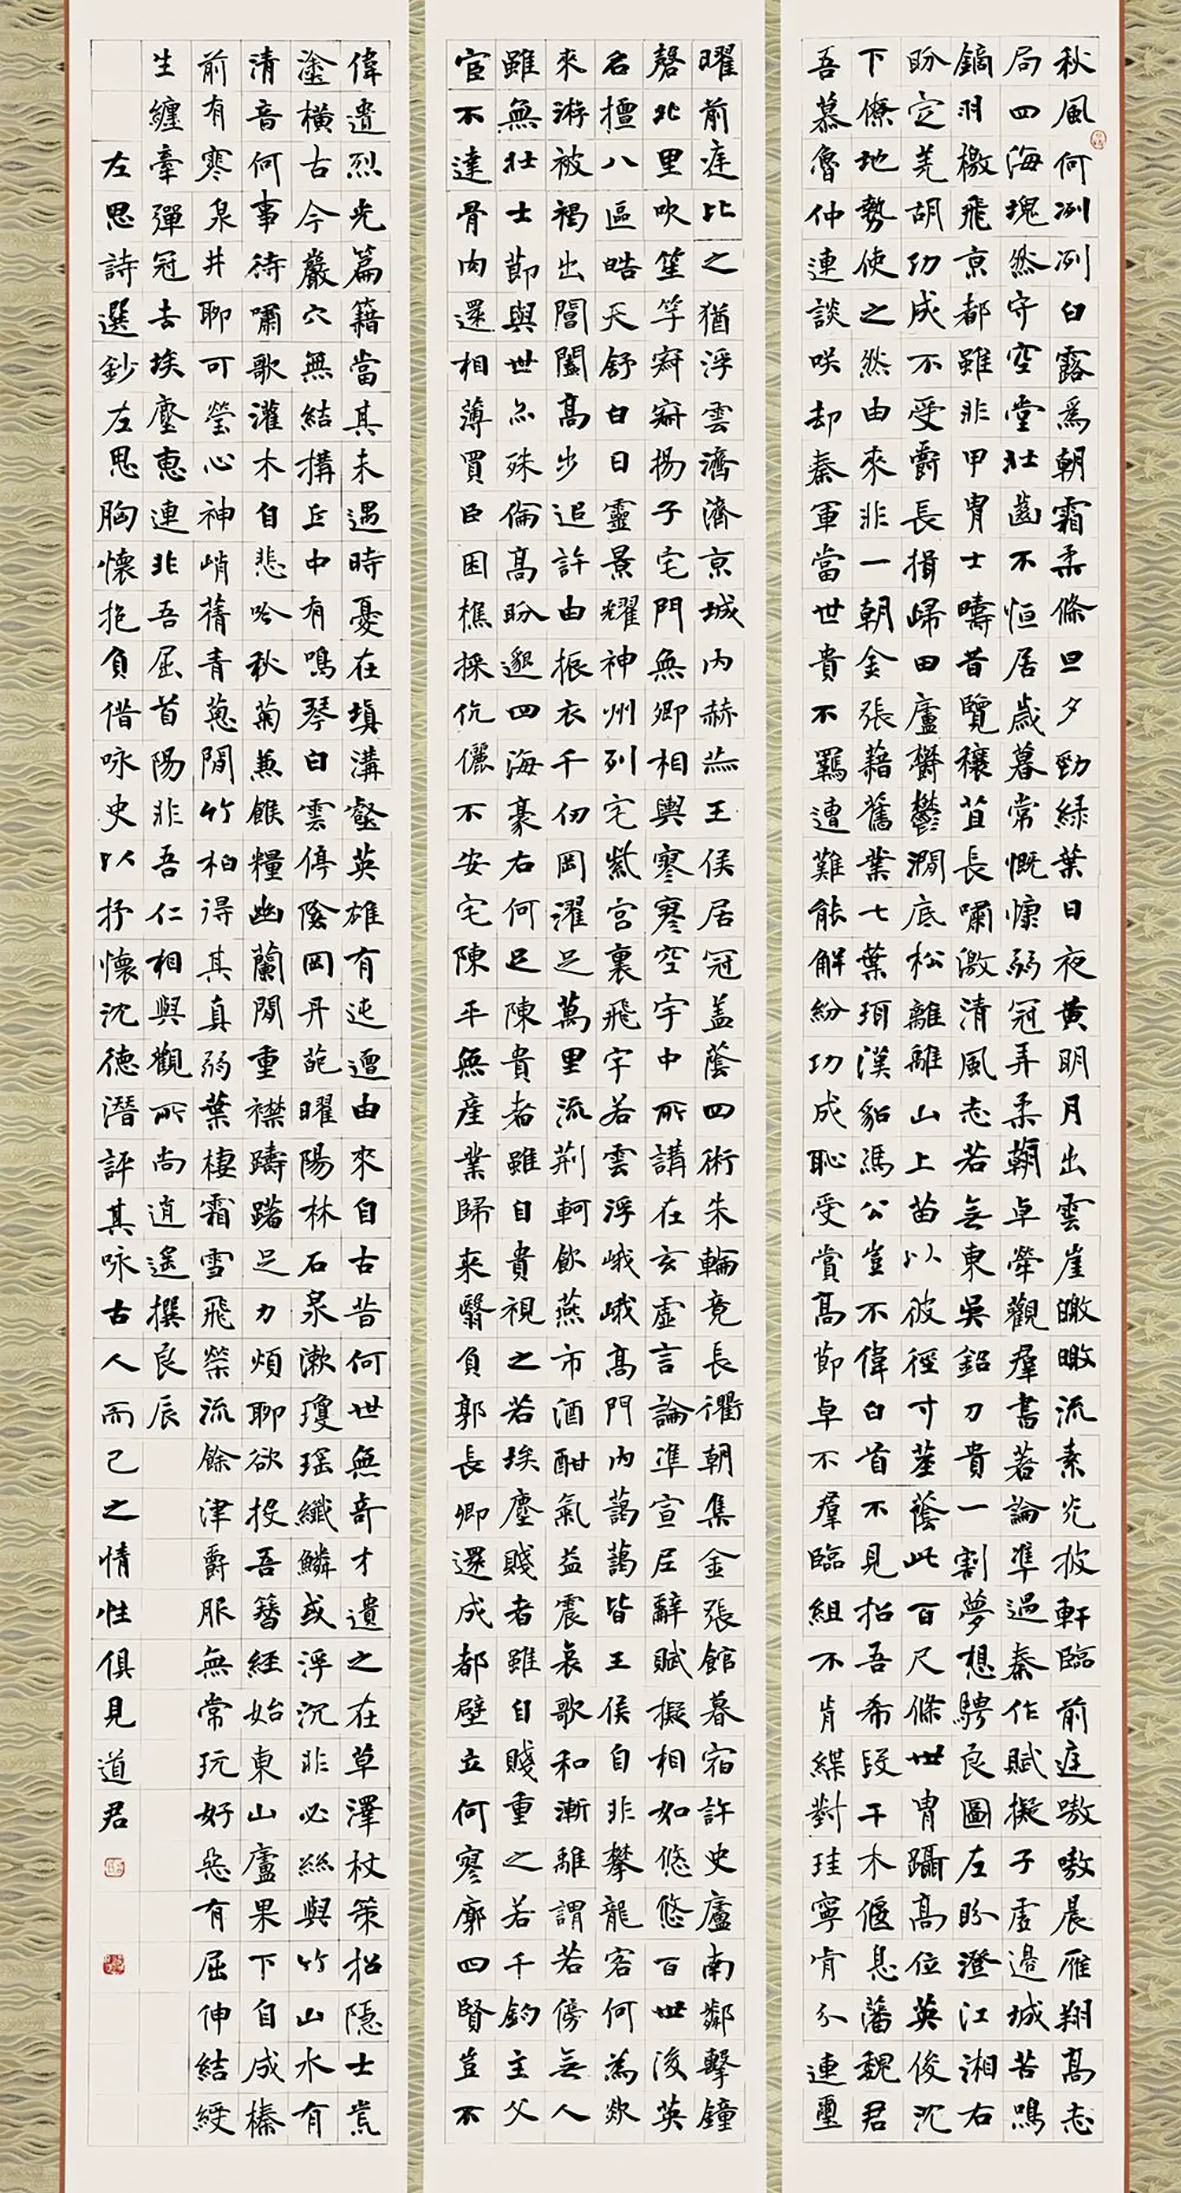 秋風何冽冽白露爲朝霜柔條旦夕勁緑葉日夜黄明月出雲崖皦皦流素光披軒臨前庭嗷嗷晨雁翔高志
局四海塊然守空堂壯齒不恒居歲暮常慨慷弱冠弄柔翰卓犖觀羣書著論準過秦作賦擬子虛邊城苦鳴
鏑羽檄飛京都雖非甲冑士疇昔覽穰苴長嘯激清風志若無東吳鉛刀貴一割夢想騁良圖左眄澄江湘右
盼定羌胡功成不受爵長揖歸田廬鬱鬱澗底松離離山上苗以彼徑寸莖蔭此百尺條世冑躡高位英俊沈
下僚地勢使之然由來非一朝金張藉舊業七葉珥漢貂馮公豈不偉白首不見招吾希段干木偃息藩魏君
吾慕魯仲連談咲却秦軍當世貴不羈遭難能解紛功成恥受賞高節卓不羣臨組不肯緤對珪寧肯分連璽
曜前庭比之猶浮雲濟濟京城内赫赫王侯居冠盖蔭四術朱輪竟長衢朝集金張館暮宿許史廬南鄰擊鐘
磬北里吹笙竽寂寂揚子宅門無卿相輿寥寥空宇中所講在玄虛言論準宣尼辭賦擬相如悠悠百世後英
名擅八區皓天舒白日靈景耀神州列宅紫宮裏飛宇若雲浮峨峨高門内藹藹皆王侯自非攀龍客何為欻
來游被褐出閶闔高步追許由振衣千仞岡濯足萬里流荆軻飲燕市酒酣氣益震哀歌和漸離謂若傍無人
雖無壯士節與世亦殊倫高眄邈四海豪右何足陳貴者雖自貴視之若埃塵賤者雖自賤重之若千鈞主父
宦不達骨肉還相薄買臣困樵採伉儷不安宅陳平無産業歸來翳負郭長卿還成都壁立何寥廓四賢豈不
偉遺烈光篇籍當其未遇時憂在填溝壑英雄有迍邅由來自古昔何世無奇才遺之在草澤杖策招隱士荒
塗橫古今巖穴無結構丘中有鳴琴白雲停陰岡丹葩曜陽林石泉漱瓊瑶纖鱗或浮沉非必絲與竹山水有
清音何事待嘯歌灌木自悲吟秋菊兼餱糧幽蘭間重襟躊躇足力煩聊欲投吾簪經始東山廬果下自成榛
前有寒泉井聊可瑩心神峭蒨青葱間竹柏得其真弱葉棲霜雪飛榮流餘津爵服無常玩好惡有屈伸結綬
生纏牽彈冠去埃塵惠連非吾屈首陽非吾仁相與觀所尚逍遙撰良辰
左思詩選鈔左思胸懷抱負借咏史以抒懷沈德潛評其咏古人而己之情性俱見道君